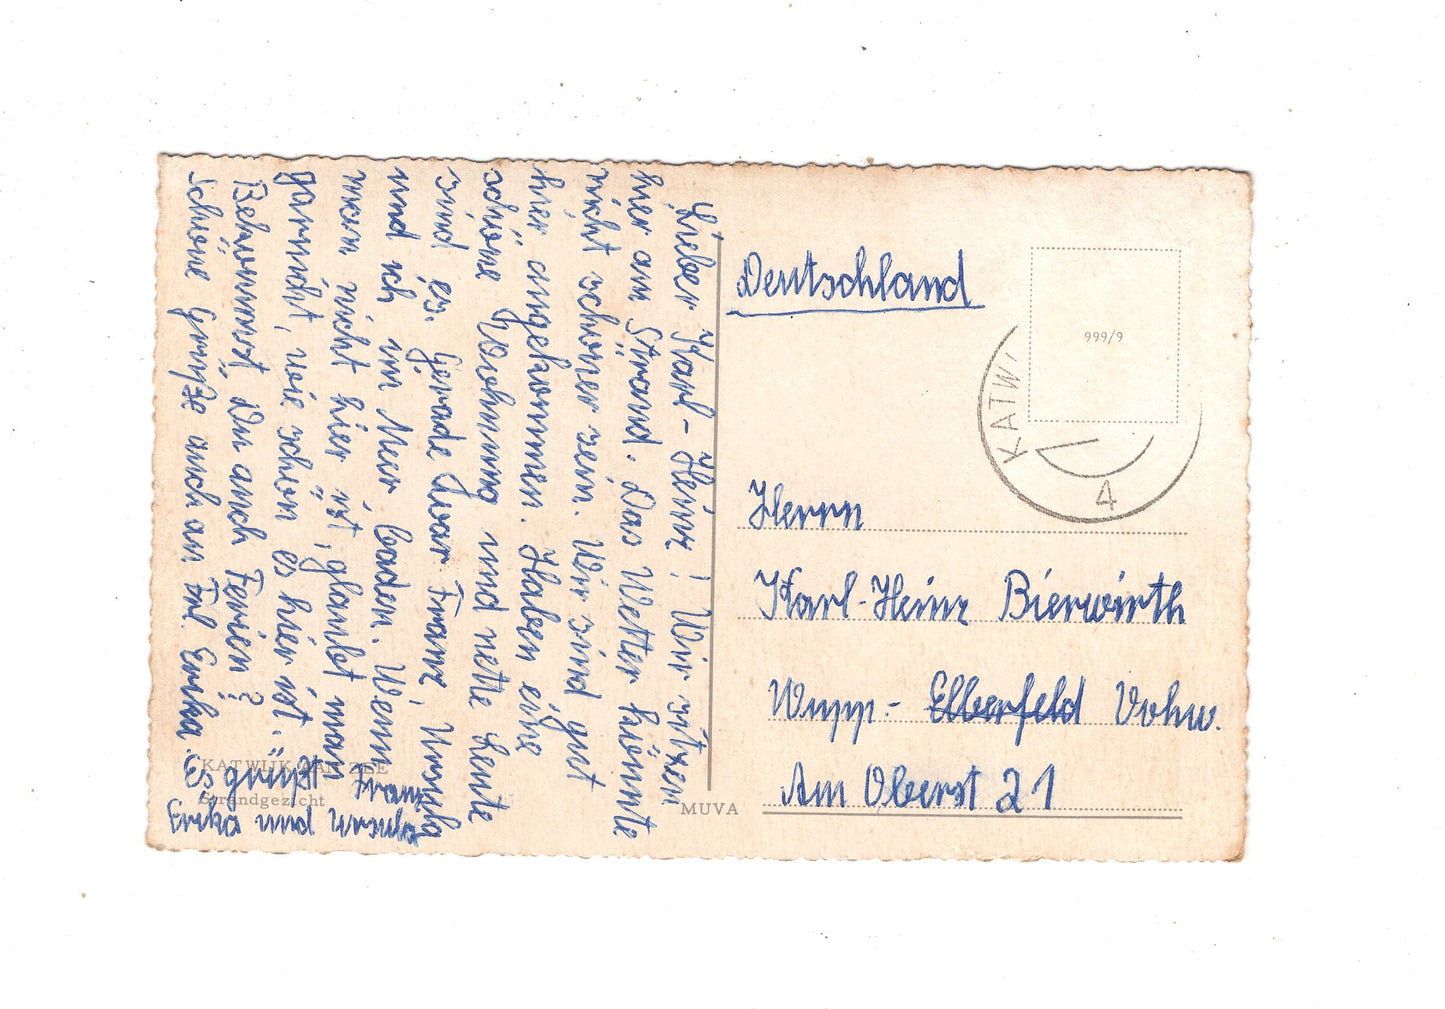 Lieber Karl-Heinz! Wir sitzen
hier am Strand. Das Wetter könnte
nicht schöner sein. Wir sind gut
hier angekommen. Haben eine
schöne Wohnung und nette Leute
sind es. Gerade war Franz, Ursula
und ich im Meer, baden. Wenn
man nicht hier ist, glaubt man
garnicht, wie schön es hier ist.
Bekommst Du auch Ferien?
Schöne Grüße auch an Frl. Erika.
Es grüßt Franz
Erika und Ursula
KATWIJK AAN ZEE
Strandgezicht
MUVA
Deutschland
999/9
KATW
4
Herrn
Karl-Heinz Bierwirth
Wupp.- Elberfeld Vohw.
Am Oberst 21